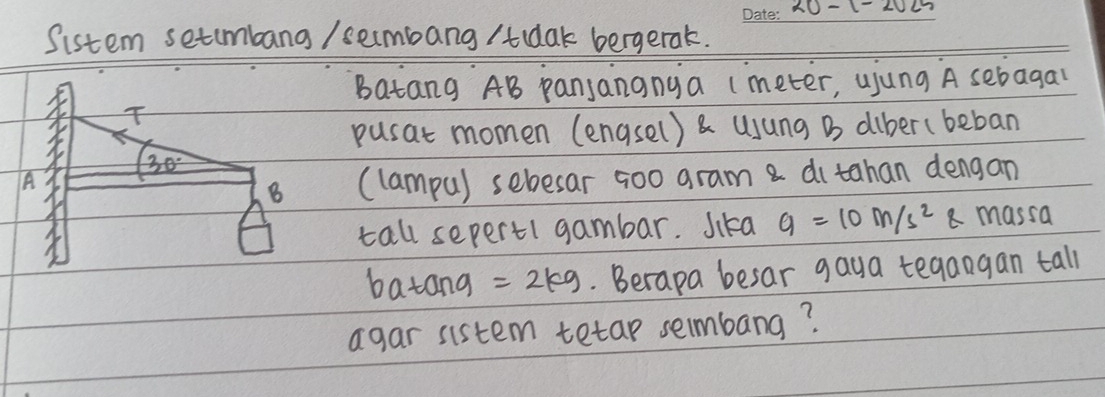 Date: 20 - 1 - 2025
Sistem setimbang / seimbang / tidak bergerak.
Batang AB panjangnya 1 meter, ujung A sebagai
T
pusat momen (engsel) & ujung B diberi beban
30°
A
B
(lampu) sebesar 500 gram & di tahan dengan
tali seperti gambar. Jika g = 10 m/s² & massa
batang = 2kg. Berapa besar gaya tegangan tali
agar sistem tetap seimbang?